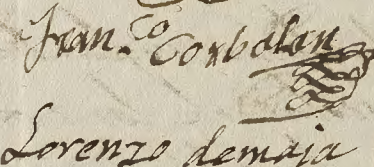 Fran.co Corbalan
Lorenzo demaja